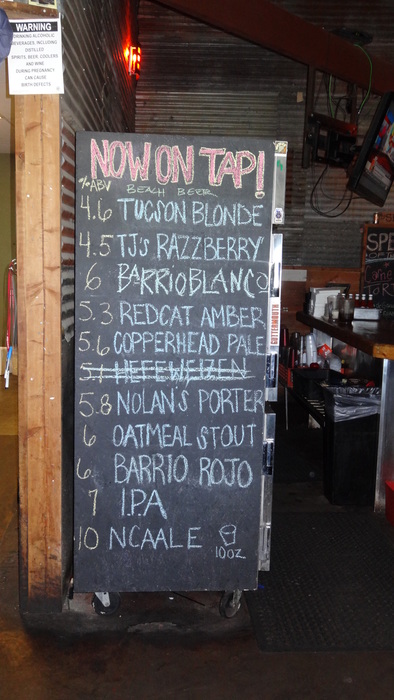 WARNING
DRINKING ALCOHOLIC
BEVERAGES, INCLUDING
DISTILLED
SPIRITS, BEER, COOLERS,
AND WINE
DURING PREGNANCY
CAN CAUSE
BIRTH DEFECTS
NOW ON TAP!
% ABV BEACH BEER
4.6 TUCSON BLONDE
4.5 TJ's RAZZBERRY
6 BARRIO BLANCO
5.3 REDCAT AMBER
5.6 COPPERHEAD PALE
5.1 HEFEWEIZEN
5.8 NOLAN'S PORTER
6 OATMEAL STOUT
6. BARRIO ROJO
7 I.P.A
10 NCAALE
10oz
GUTTERMOUTH
SPE